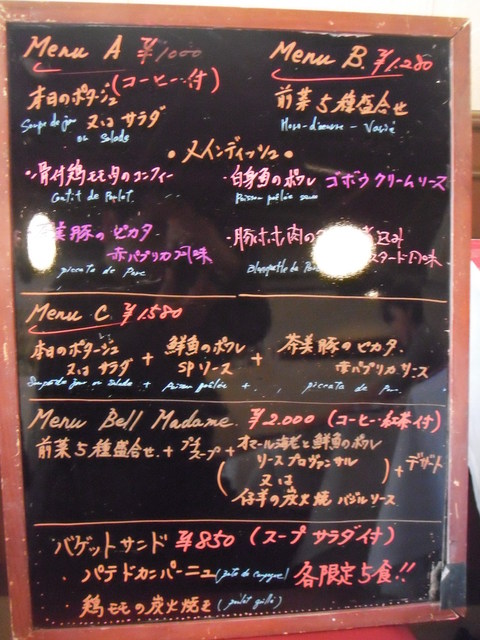 Menu A ¥1000
(コーヒー付)
本日のポタージュ
又は サラダ
Soupe du jour
ou Salade
Menu B. ¥1.280
前菜5種盛合せ
・メインディッシュ・
・骨付鶏モモ肉のコンフィー
Confit de Poulet
美豚のピカタ
赤パプリカ風味
piccata de Porc
・白身魚のポワレ ゴボウクリームソース
Poisson poêlée
・豚ホホ肉の
込み
スタード風味
Menu C. ¥1.580
本日のポタージュ
又は サラダ
+ 鮮魚のポワレ
SPソース
+ 茶美豚のピカタ.
赤パプリカソース
Soupe du jour ou Salade + Poisson poêlée + piccata de Porc
Menu Bell Madame. ¥2.000 (コーヒー紅茶付)
前菜5種盛合せ + プチスープ +
(オマール海老と鮮魚のポワレ
ソースプロヴァンサル
又は
仔羊の炭火焼 バジルソース)
+ デザート
バゲットサンド ¥850 (スープ サラダ付)
・パテドカンパーニュ (pate de campagne) 各限定5食!!
・鶏モモの炭火焼き (poulet grillé)